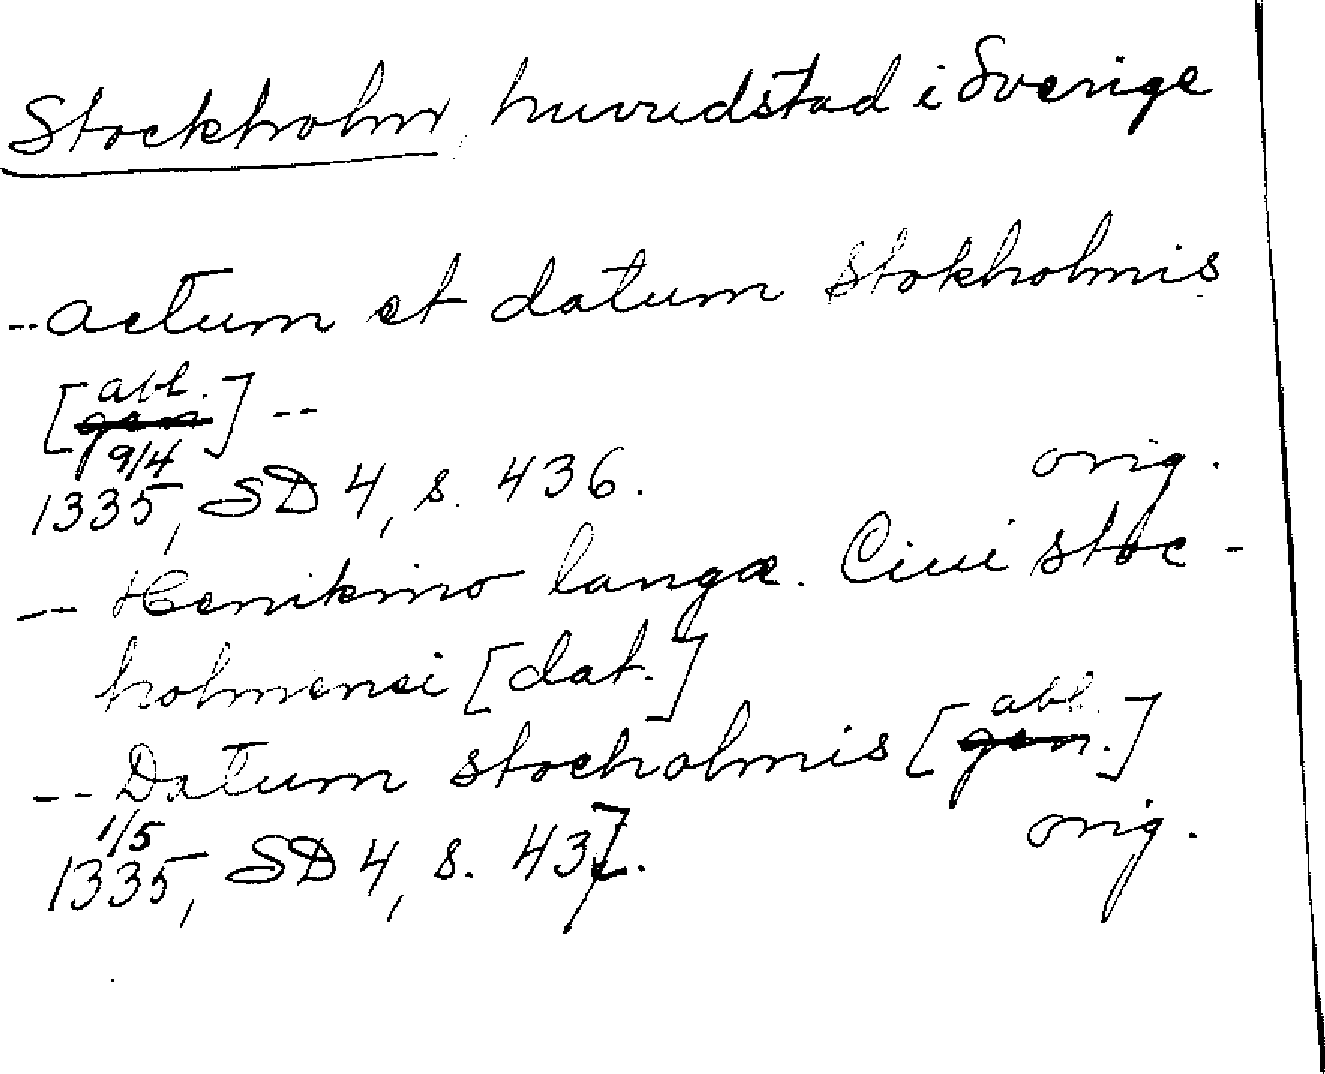 Stockholm, huvudstad i Sverige
-- actum et datum stokholmis
[abl. gen] --
9/4
1335, SD 4, s. 436. orig.
-- Henikino langæ. Ciui stoc-
holmensi [dat.]
-- Datum stocholmis [abl. gen.]
1/5
1335, SD 4, s. 437. orig.